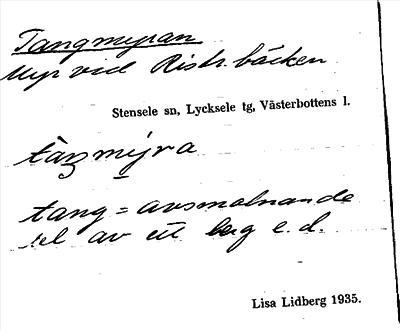 Tangmyran
Myr vid Ristr.bäcken
Stensele sn, Lycksele tg, Västerbottens l.
tàŋmýra
tang = avsmalnande
del av ett berg e.d.
Lisa Lidberg 1935.